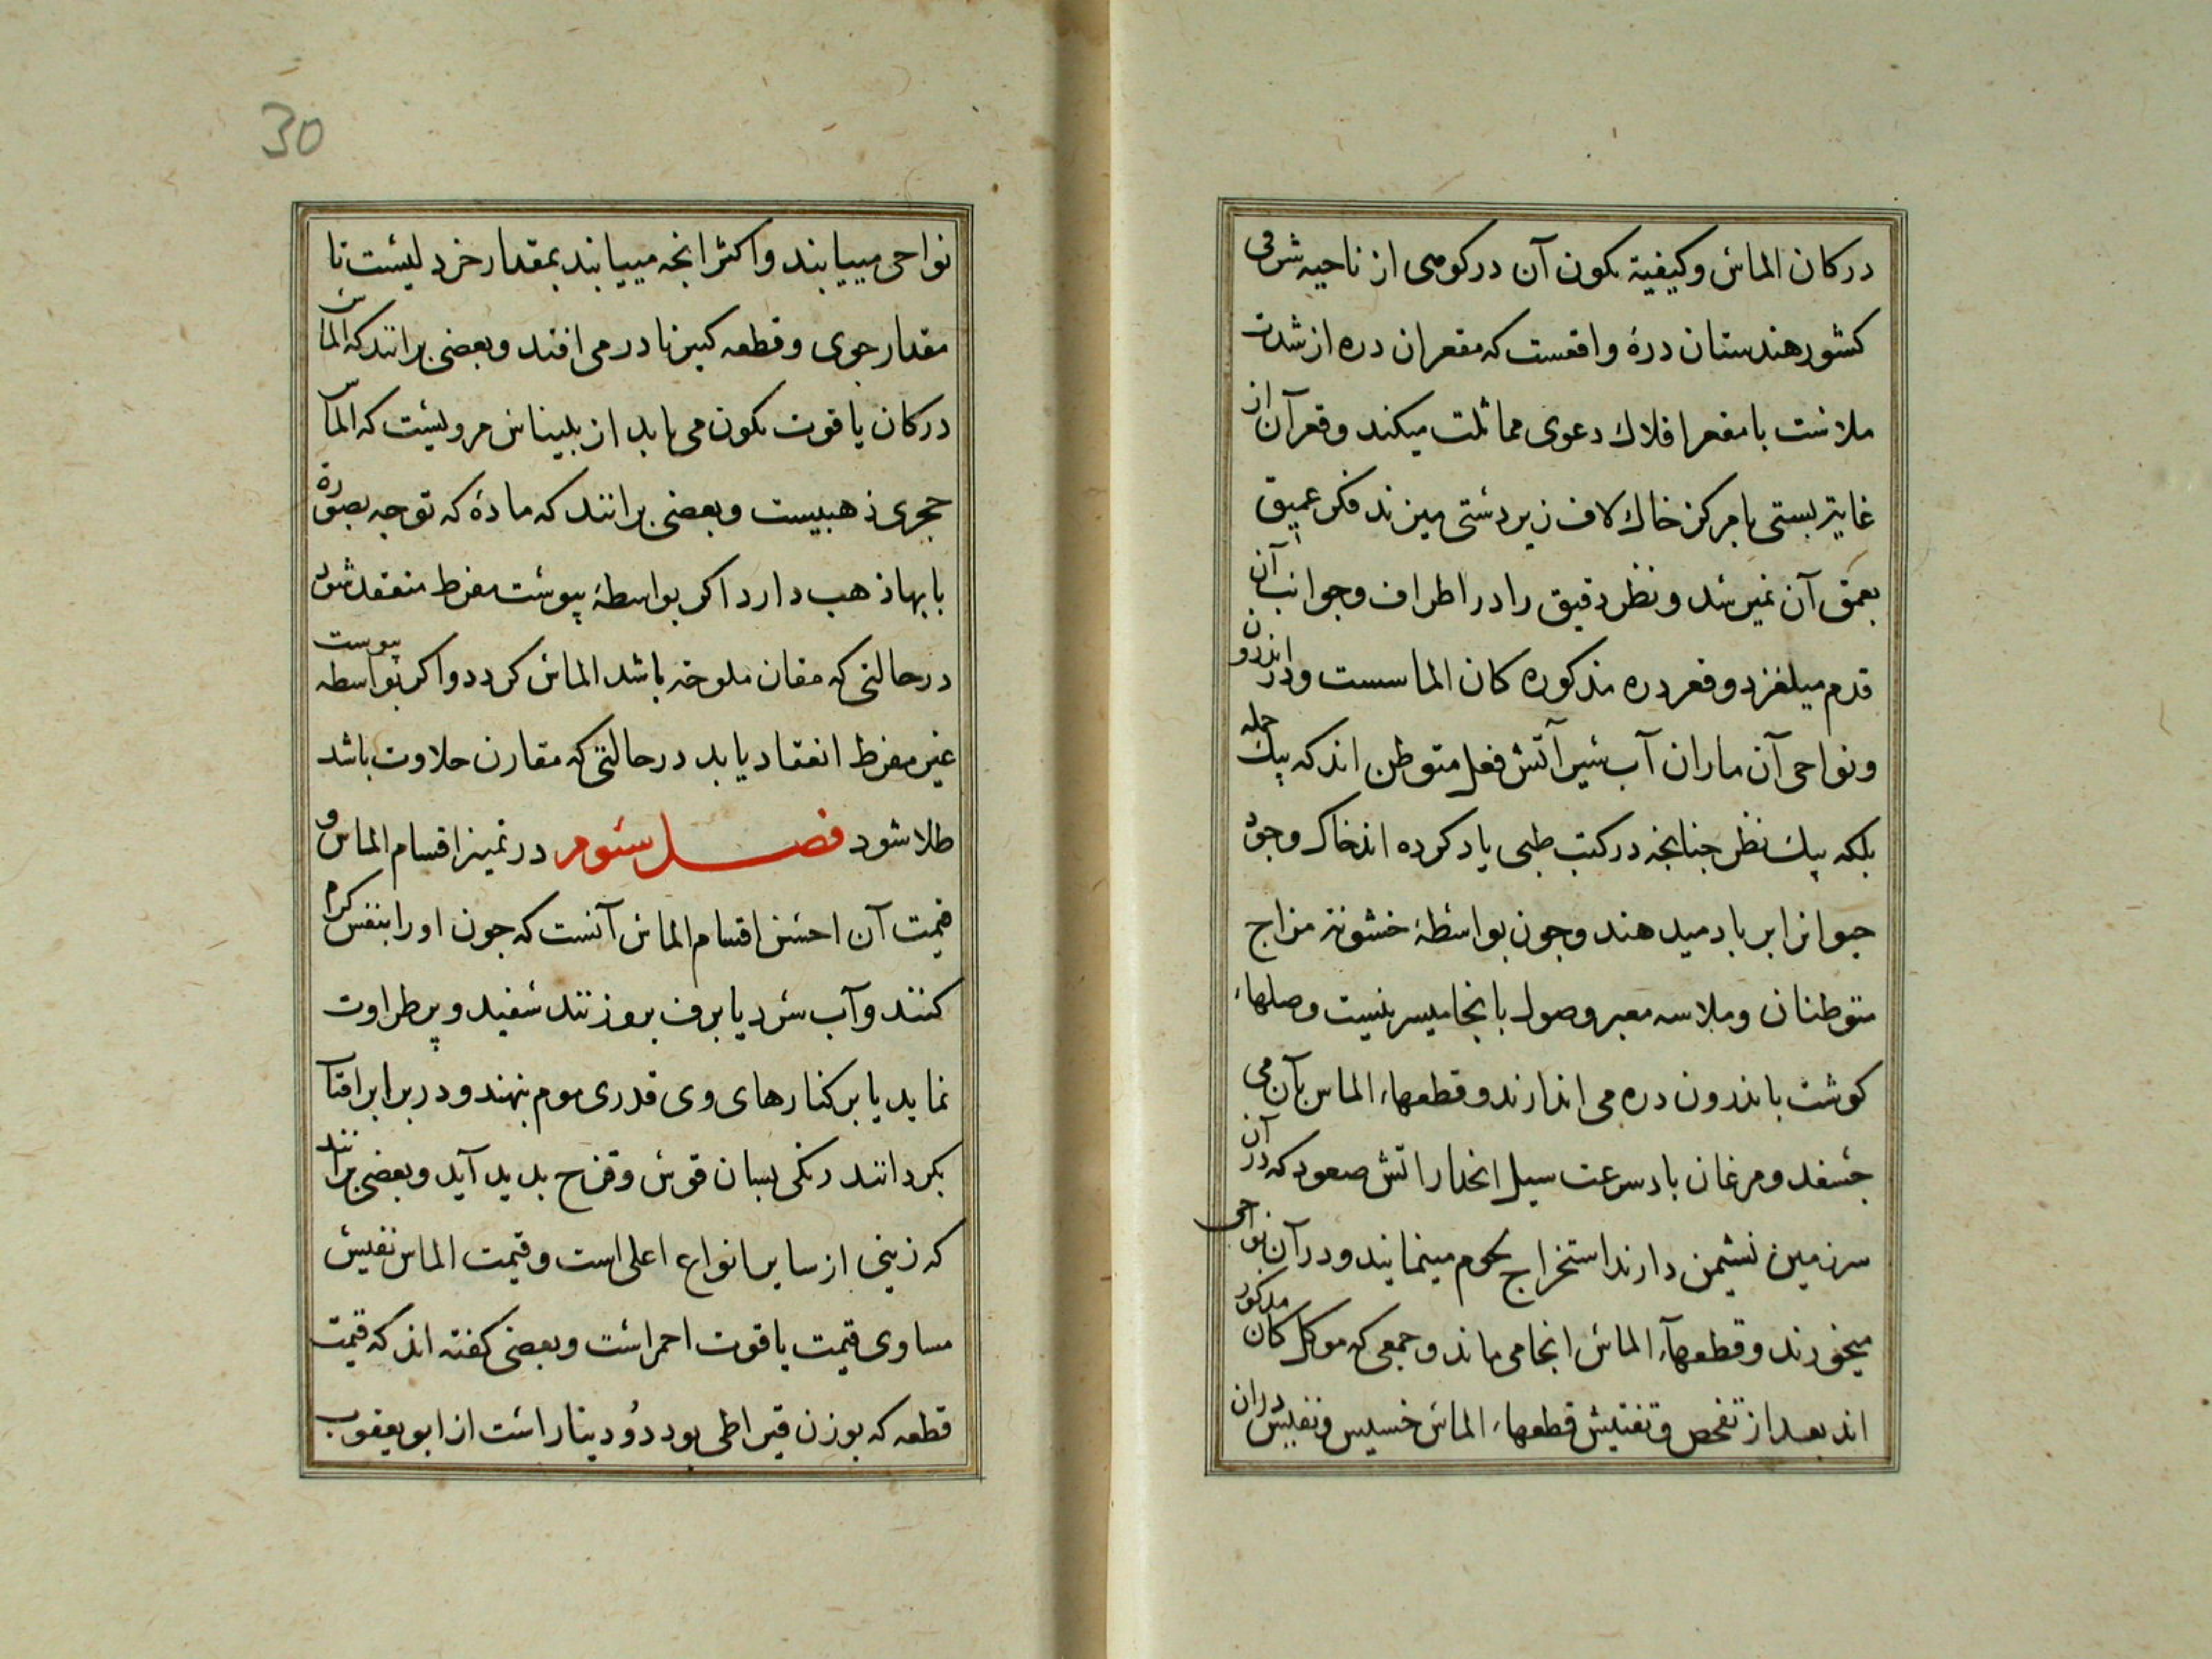 در کان الماس و کیفیة تکون آن در کوهی از ناحیه شرقی
کشور هندستان درهٔ واقعست که مقعر ان دره از شدت
ملاست با مقعر افلاک دعوی مماثلت میکند و قعر آن از
غایت پستی با مرکز خاک لاف زیردستی میزند فکر عمیق
بعمق آن نمیرسد و نظر دقیق را در اطراف و جوانب آن
قدم میلغزد و قعر دره مذکوره کان الماسست و در اندرون
و نواحی آن ماران آب سیر آتش فعل متوطن اند که بیک حمله
بلکه بیک نظر چنانچه در کتب طبی یاد کرده اند خاک وجود
حیوانرا بر باد میدهند و چون بواسطهٔ خشونة مزاج
متوطنان و ملاسه معبر وصول بانجا میسر نیست وصلهاء
کوشت باندرون دره می اندازند و قطعهاء الماس بآن می
چسفد و مرغان باد سرعت سیل انحدار اتش صعود که در آن
سرزمین نشیمن دارند استخراج لحوم مینمایند و در آن نواحی
میخورند و قطعهاء الماس انجا می ماند و جمعی که موکل کان مذکور
اند بعد از تفحص و تفتیش قطعهاء الماس خسیس و نفیس در ان
30
نواحی مییابند و اکثر انچه مییابند بمقدار خردلیست تا
مقدار جوی و قطعه کبیر نادر می افتد و بعضی برانند که الماس
در کان یاقوت تکون می یابد از بلیناس مرویست که الماس
حجری ذهبیست و بعضی برانند که مادهٔ که توجه بصورة
بابها ذهب دارد اکر بواسطهٔ یبوست مفرط منعقد شود
در حالتی که مقارن ملوحة باشد الماس کردد و اکر بواسطه یبوست
غیر مفرط انعقاد یابد در حالتی که مقارن حلاوت باشد
طلا شود فصل سئوم در تمیز اقسام الماس و
قیمت آن احسن اقسام الماس آنست که چون او را بنفس کرم
کنند و آب سرد یا برف برو زنند سفید و پرطراوت
نماید یا بر کنارهای وی قدری موم نهند و در برابر افتاب
بکردانند رنکی بسان قوس و قزح بدید آید و بعضی برانند
که زیتی از سایر انواع اعلی است و قیمت الماس نفیس
مساوی قیمت یاقوت احمر است و بعضی کفته اند که قیمت
قطعه که بوزن قیراطی بود دو دینار است از ابو یعقوب